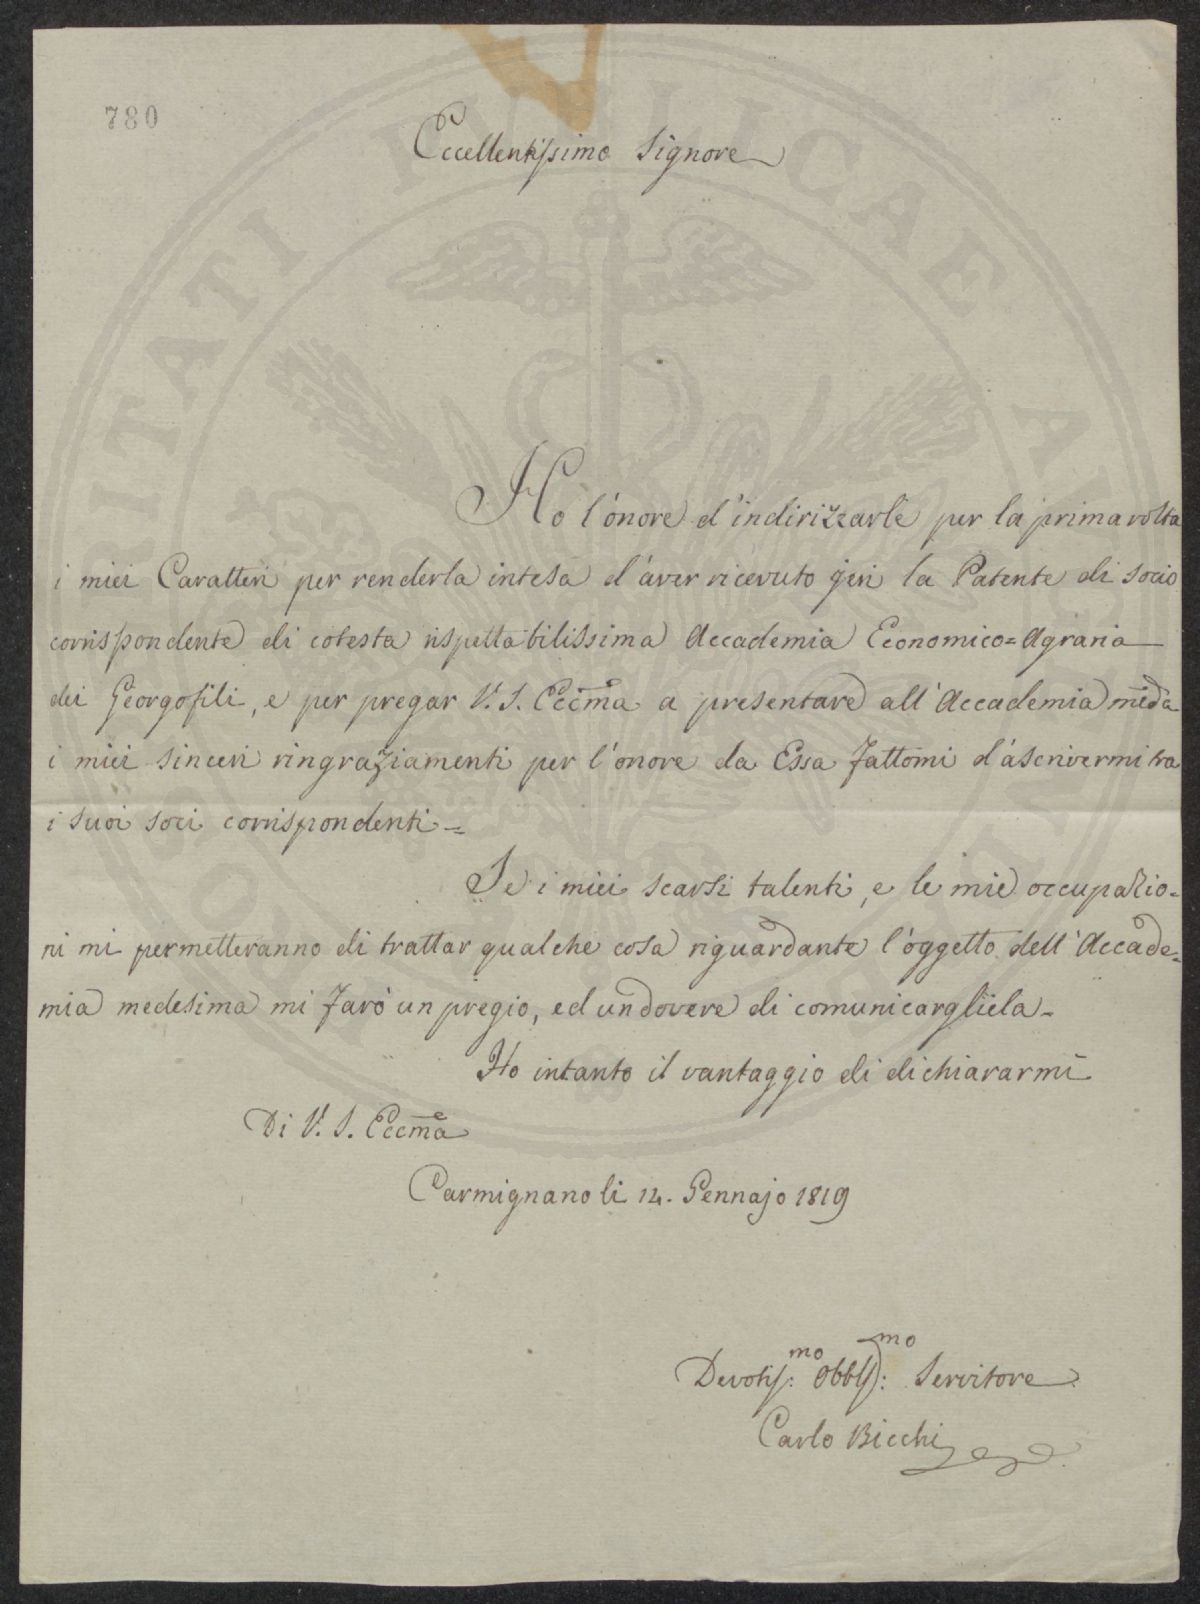 780
Eccellentissimo Signore
Ho l'onore d'indirizzarle per la prima volta
i miei Caratteri per renderla intesa d'aver ricevuto jeri la Patente di socio
corrispondente di cotesta rispettabilissima Accademia Economico=Agraria
dei Georgofili, e per pregar V. S. Eccma a presentare all'Accademia meda
i miei sinceri ringraziamenti per l'onore da Essa fattomi d'ascrivermi tra
i suoi soci corrispondenti=
Se i miei scarsi talenti, e le mie occupazio=
ni mi permetteranno di trattar qualche cosa riguardante l'oggetto dell'Accade=
mia medesima mi farò un pregio, ed un dovere di comunicargliela-
Ho intanto il vantaggio di dichiararmi
Di V. S. Eccma
Carmignano li 14. Gennajo 1819
Devotiss:mo Obbls:mo Servitore
Carlo Bicchi